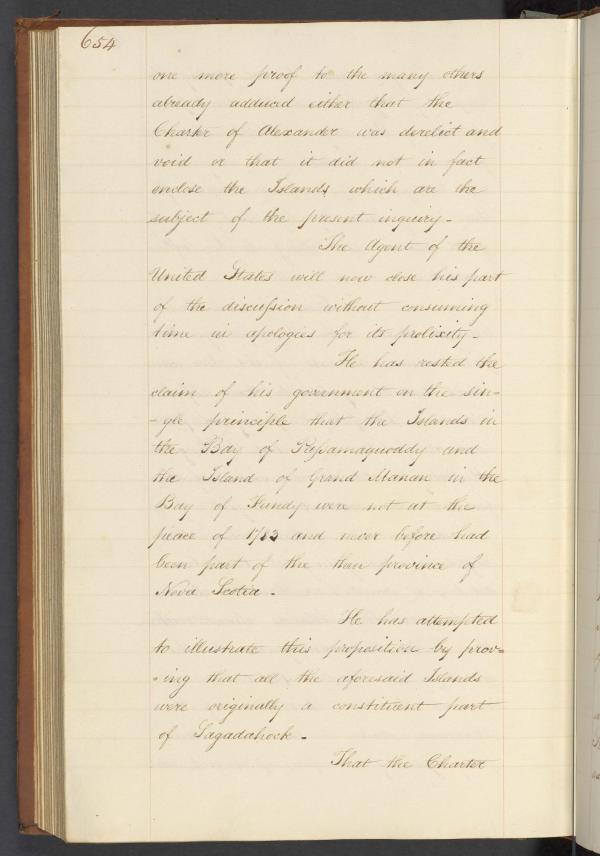 654
one more proof to the many others
already adduced either that the
Charter of Alexander was derelict and
void or that it did not in fact
enclose the Islands which are the
subject of the present inquiry -
The Agent of the
United States will now close his part
of the discussion without consuming
time in apologies for its prolixity -
He has rested the
claim of his government on the sin-
-gle principle that the Islands in
the Bay of Passamaquoddy and
the Island of Grand Manan in the
Bay of Fundy were not at the
peace of 1783 and never before had
been part of the then province of
Nova Scotia -
He has attempted
to illustrate this proposition by prov=
=ing that all the aforesaid Islands
were originally a constituent part
of Sagadahock -
That the Charter